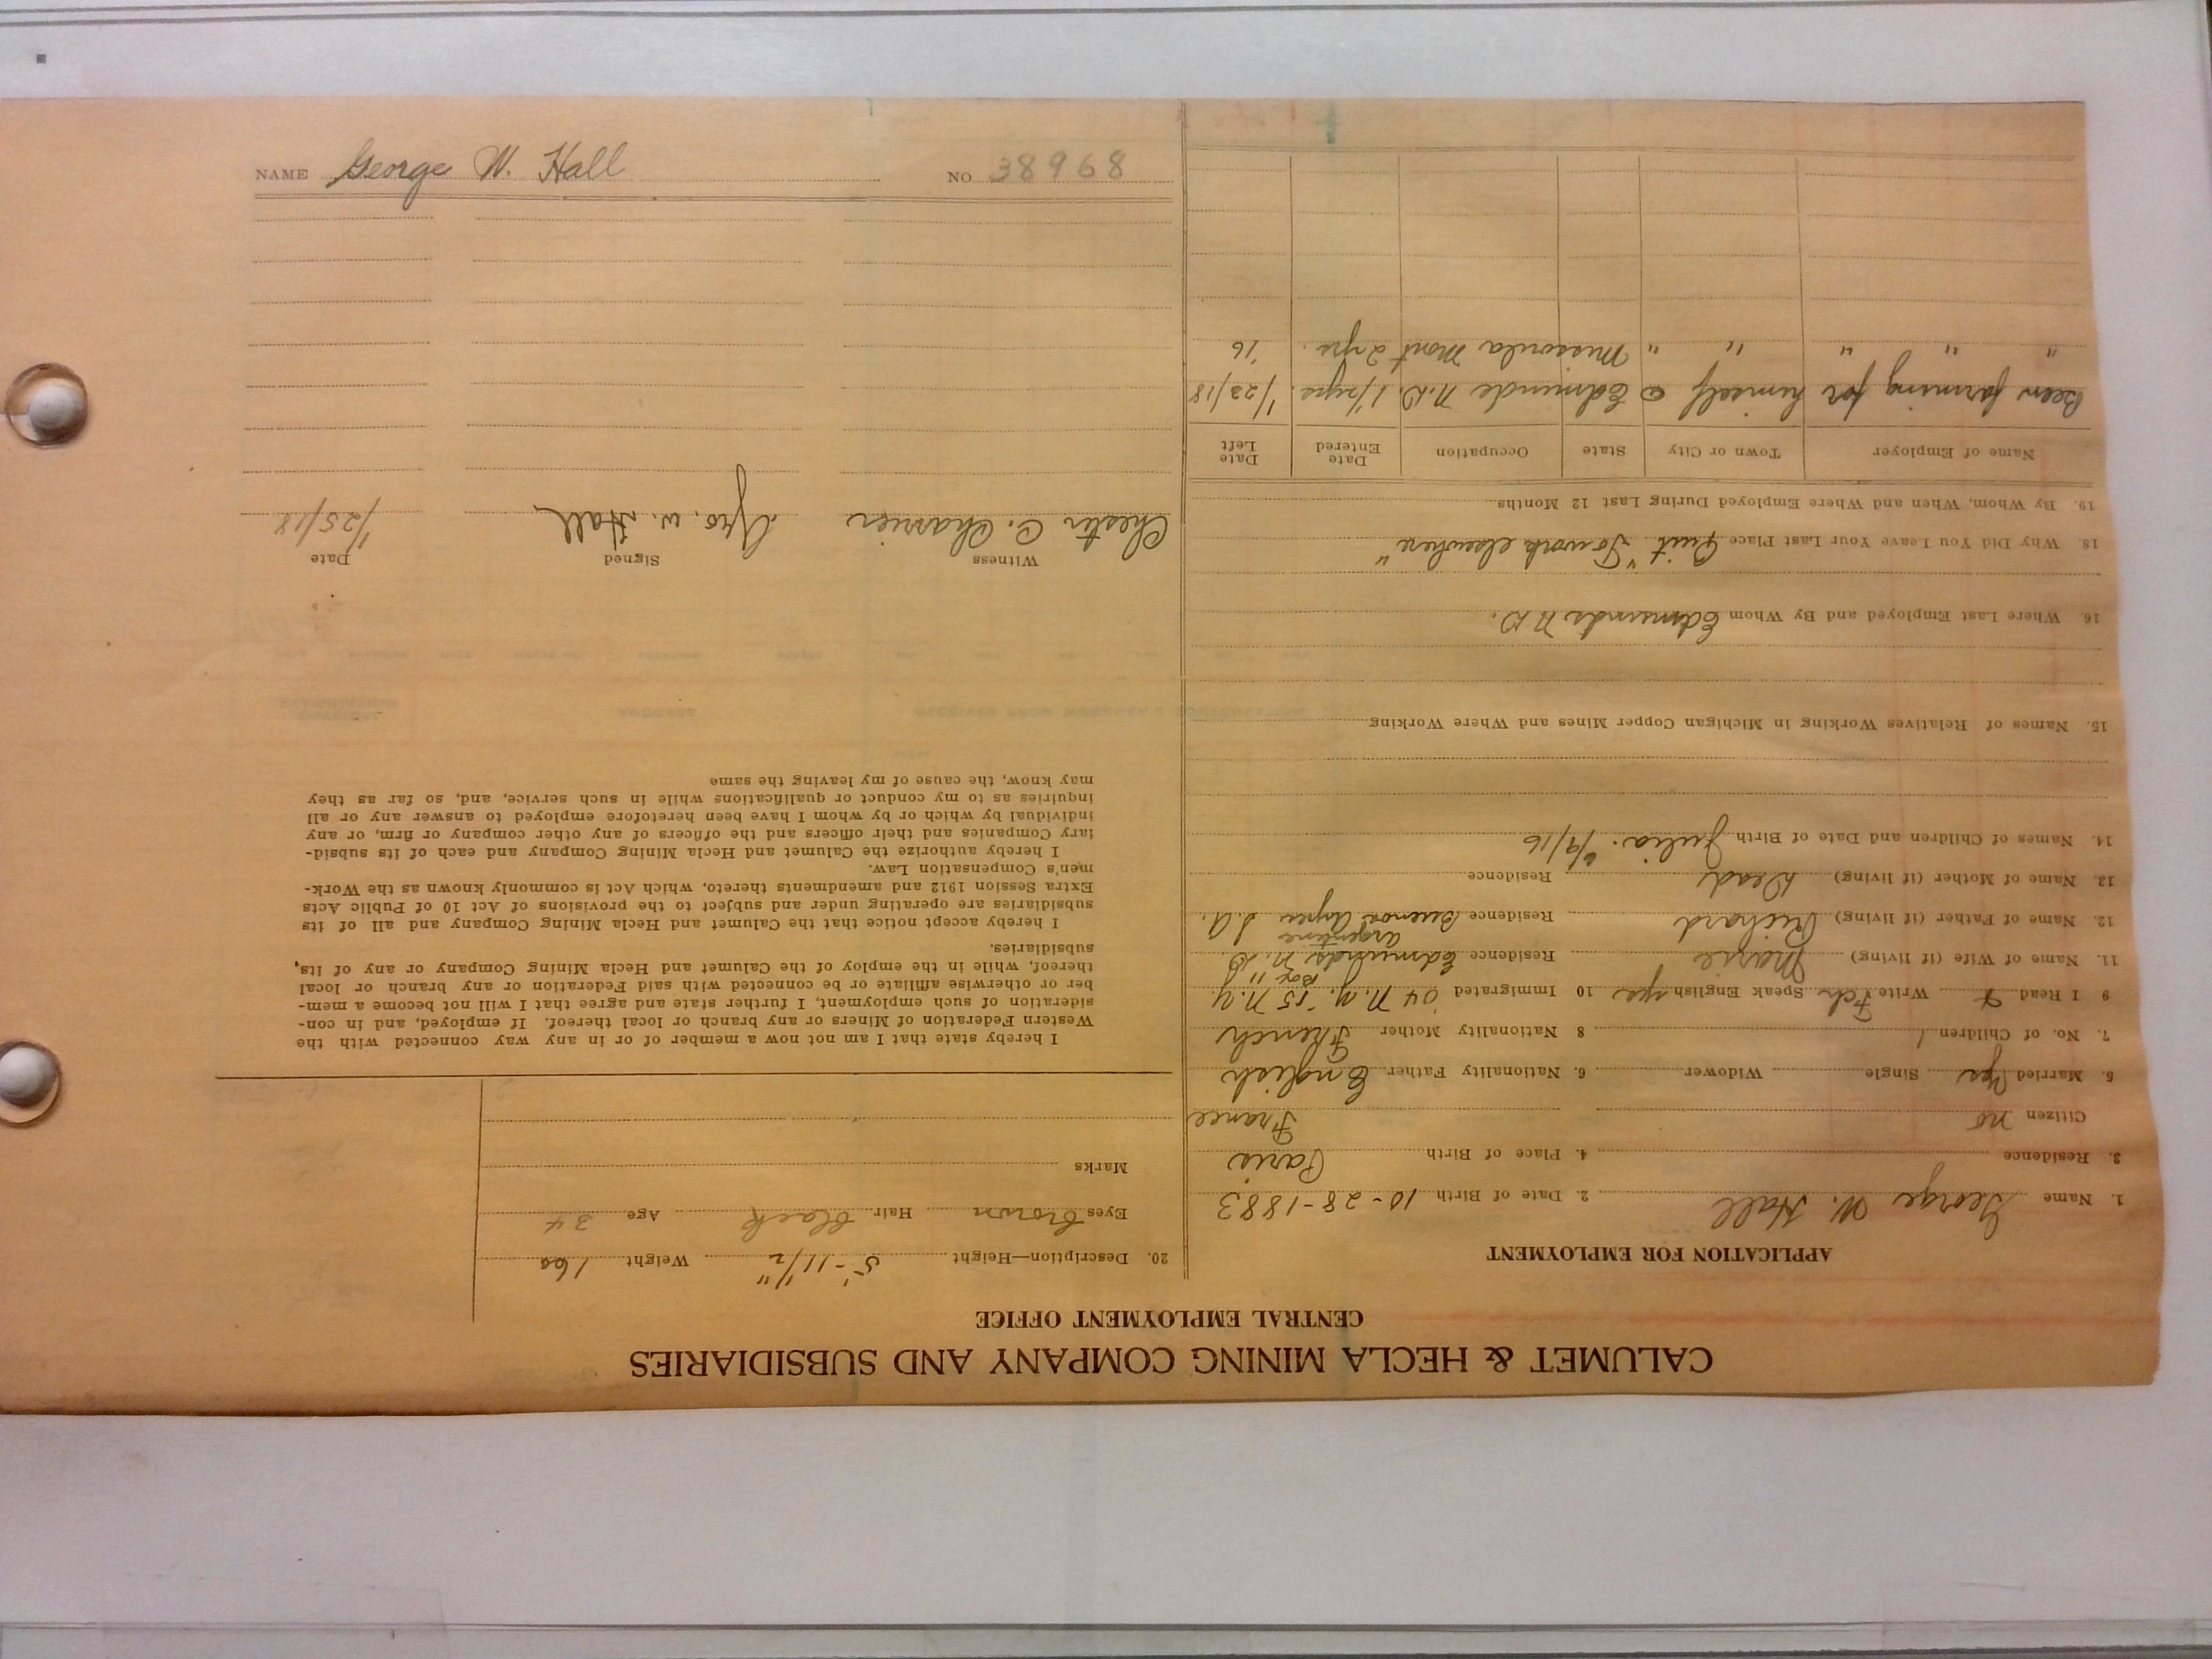 CALUMET & HECLA MINING COMPANY AND SUBSIDIARIES
CENTRAL EMPLOYMENT OFFICE
APPLICATION FOR EMPLOYMENT
1. Name George W. Hall 2. Date of Birth 10-28-1883
3. Residence 4. Place of Birth Paris
Citizen no France
5. Married Yes Single Widower 6. Nationality Father English
7. No. of Children 1 8 Nationality Mother French
9 I Read & Write Fch. Speak English yes 10 Immigrated '04 N.Y. '15 N.Y.
Box 11
11. Name of Wife (if living) Marie Residence Edmunds N.D.
Argentine
12. Name of Father (if living) Richard Residence Buenos Ayres S.A.
13. Name of Mother (if living) Dead Residence
14. Names of Children and Date of Birth Julia. 6/9/16
15. Names of Relatives Working in Michigan Copper Mines and Where Working
16. Where Last Employed and By Whom Edmunds N.D.
18. Why Did You Leave Your Last Place Quit "To work elsewhere"
19. By Whom, When and Where Employed During Last 12 Months
Name of Employer Town or City State Occupation Date Entered Date Left
Been farming for himself @ Edmunds N.D. 1 1/2 yrs. 1/23/18
" " " " " Missoula Mont 2 yrs. '16
20. Description—Height 5'-11 1/2" Weight 160
Eyes brown Hair black Age 34
Marks
I hereby state that I am not now a member of or in any way connected with the
Western Federation of Miners or any branch or local thereof. If employed, and in con-
sideration of such employment, I further state and agree that I will not become a mem-
ber or otherwise affiliate or be connected with said Federation or any branch or local
thereof, while in the employ of the Calumet and Hecla Mining Company or any of its,
subsidiaries.
I hereby accept notice that the Calumet and Hecla Mining Company and all of its
subsidiaries are operating under and subject to the provisions of Act 10 of Public Acts
Extra Session 1912 and amendments thereto, which Act is commonly known as the Work-
men's Compensation Law.
I hereby authorize the Calumet and Hecla Mining Company and each of its subsid-
iary Companies and their officers and the officers of any other company or firm, or any
individual by which or by whom I have been heretofore employed to answer any or all
inquiries as to my conduct or qualifications while in such service, and, so far as they
may know, the cause of my leaving the same
Witness Signed Date
Chester C. Charrier Geo. W. Hall 1/25/18
NAME George W. Hall NO 38968